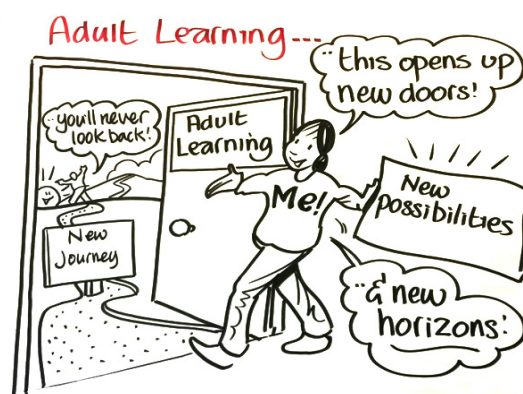 Adult Learning...
"this opens up
new doors!
"you'll never
look back!
Adult
Learning
Me!
New
possibilities
New
Journey
"& new
horizons!